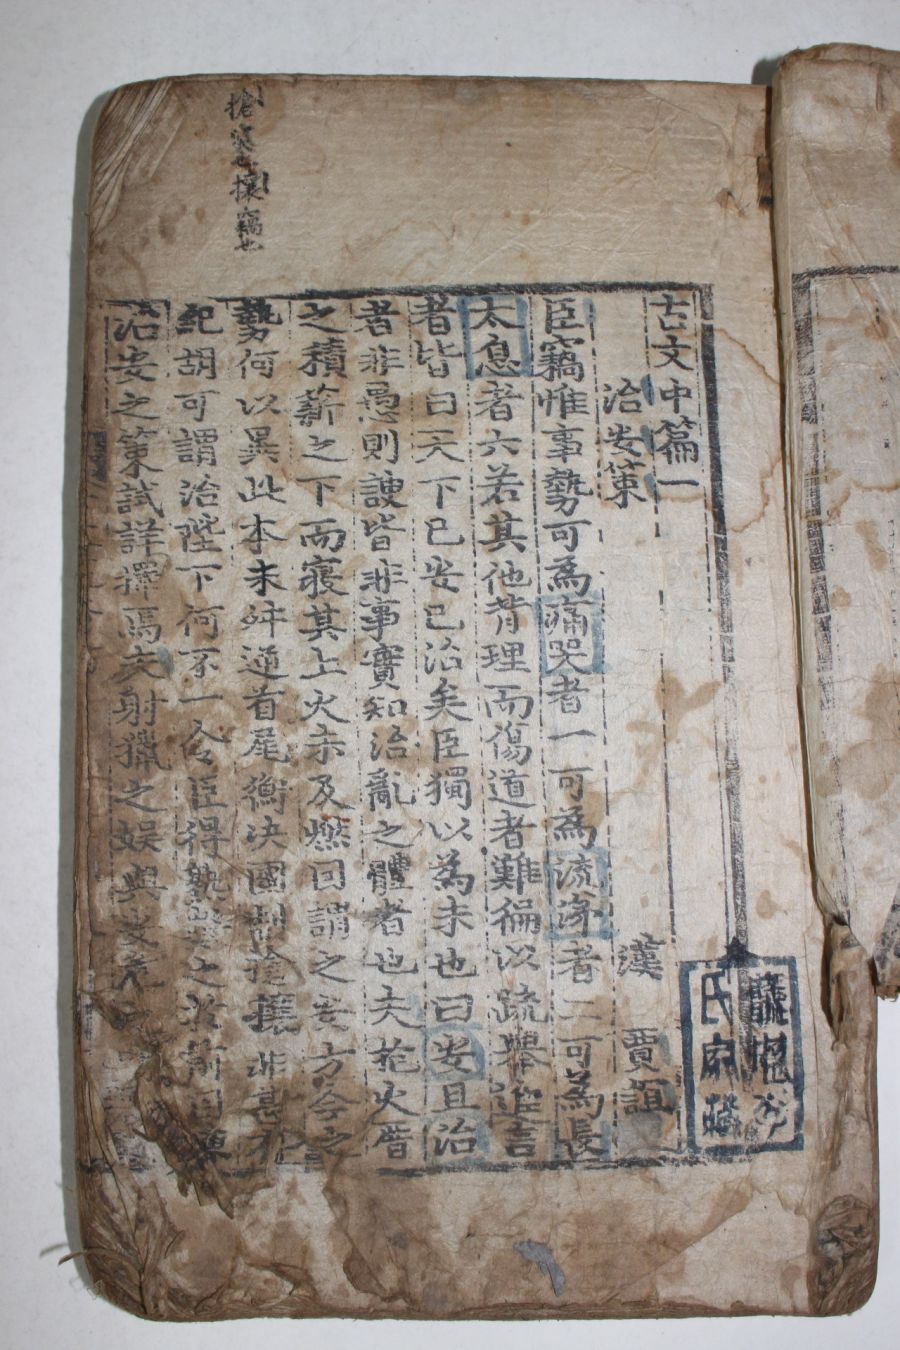 古文中篇一
治安策
漢 賈誼
臣竊惟事勢可爲痛哭者一可爲流涕者二可爲長
太息者六若其他背理而傷道者難徧以疏擧進言
者皆曰天下已安已治矣臣獨以為未也曰安且治
者非愚則諛皆非事實知治亂之體者也夫抱火厝
之積薪之下而寢其上火未及燃回謂之安方今之
勢何以異此本末舛逆首尾衡决國制搶攘非甚有
紀胡可謂治陛下何不一令臣得孰數之於前因陳
治安之策試詳擇焉夫射獵之娛與安危
搶 攘
氏家藏